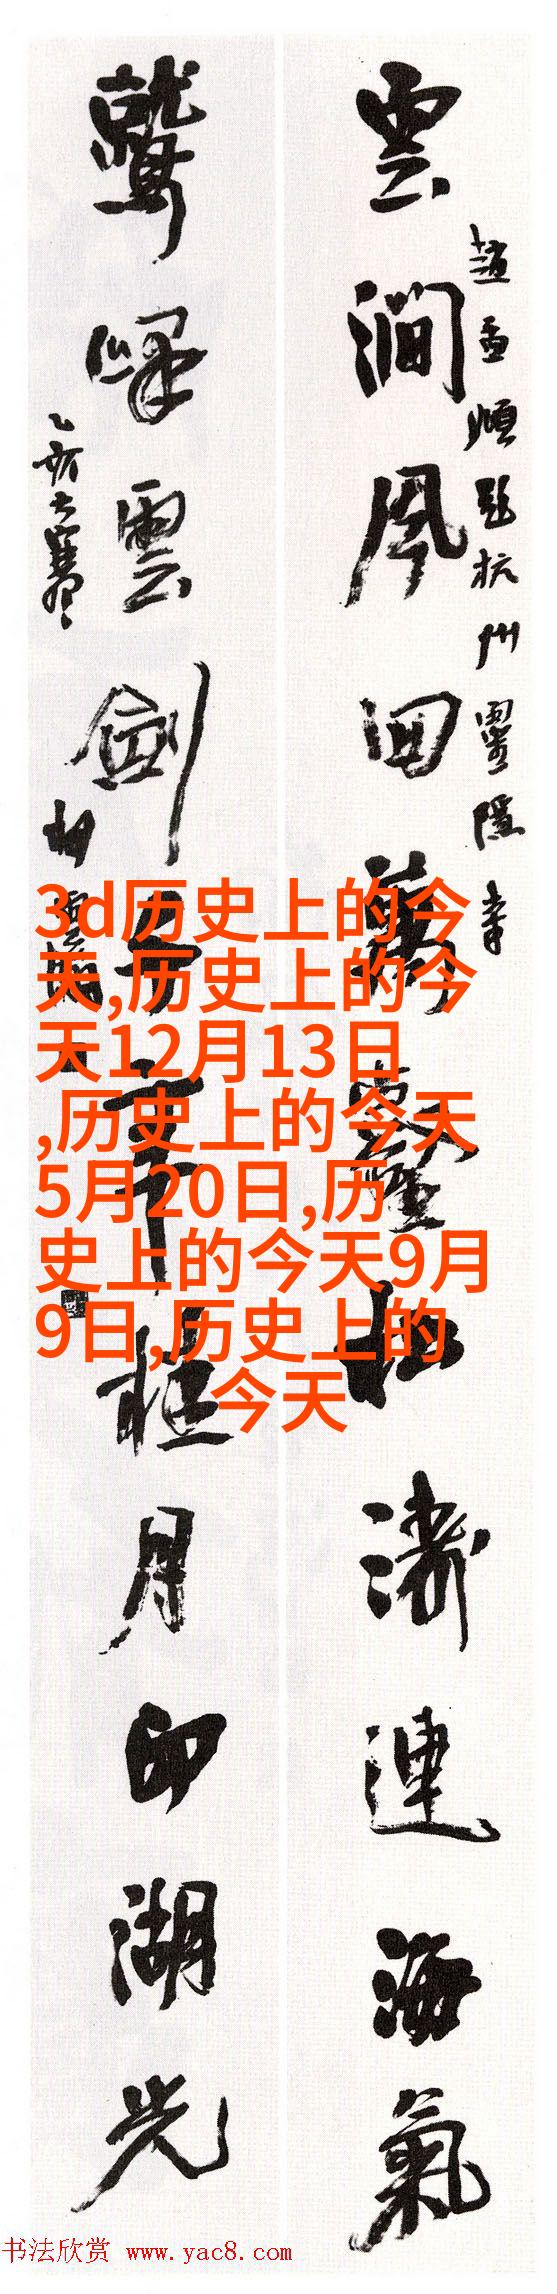 雲澗風回萬壑松濤連海氣
趙孟頫題杭州靈隱寺
鷲峰雲劍月印湖光
乙亥大寒
3d历史上的今
天,历史上的今
天12月13日
,历史上的今天
5月20日,历
史上的今天9月
9日,历史上的
今天
书法欣赏 www.yac8.com